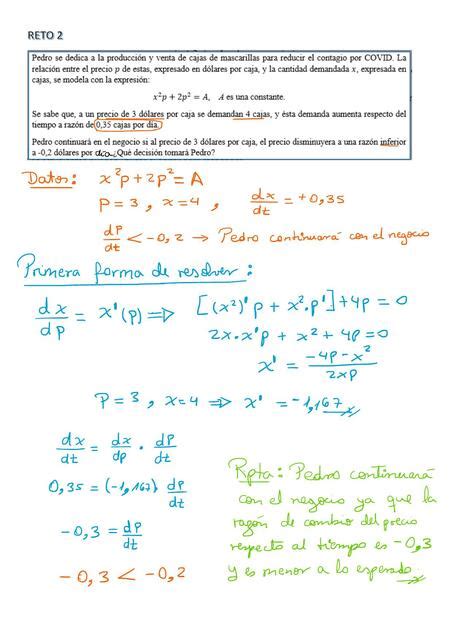 RETO 2
Pedro se dedica a la producción y venta de cajas de mascarillas para reducir el contagio por COVID. La
relación entre el precio p de estas, expresado en dólares por caja, y la cantidad demandada x, expresada en
cajas, se modela con la expresión:
x²p + 2p² = A, A es una constante.
Se sabe que, a un precio de 3 dólares por caja se demandan 4 cajas, y ésta demanda aumenta respecto del
tiempo a razón de 0,35 cajas por día.
Pedro continuará en el negocio si al precio de 3 dólares por caja, el precio disminuyera a una razón inferior
a -0,2 dólares por día ¿Qué decisión tomará Pedro?
Datos: x²p + 2p² = A
P = 3 , x = 4 , dx/dt = +0,35
dP/dt < -0,2 → Pedro continuará con el negocio
Primera forma de resolver:
dx/dp = x'(p) ⇒ [(x²)'p + x².p'] + 4p = 0
2x.x'p + x² + 4p = 0
x' = (-4p - x²)/(2xp)
P = 3 , x = 4 ⇒ x' = -1,167
dx/dt = dx/dp . dP/dt
0,35 = (-1,167) dp/dt
-0,3 = dp/dt
-0,3 < -0,2
Rpta: Pedro continuará
con el negocio ya que la
razón de cambio del precio
respecto al tiempo es -0,3
y es menor a lo esperado.